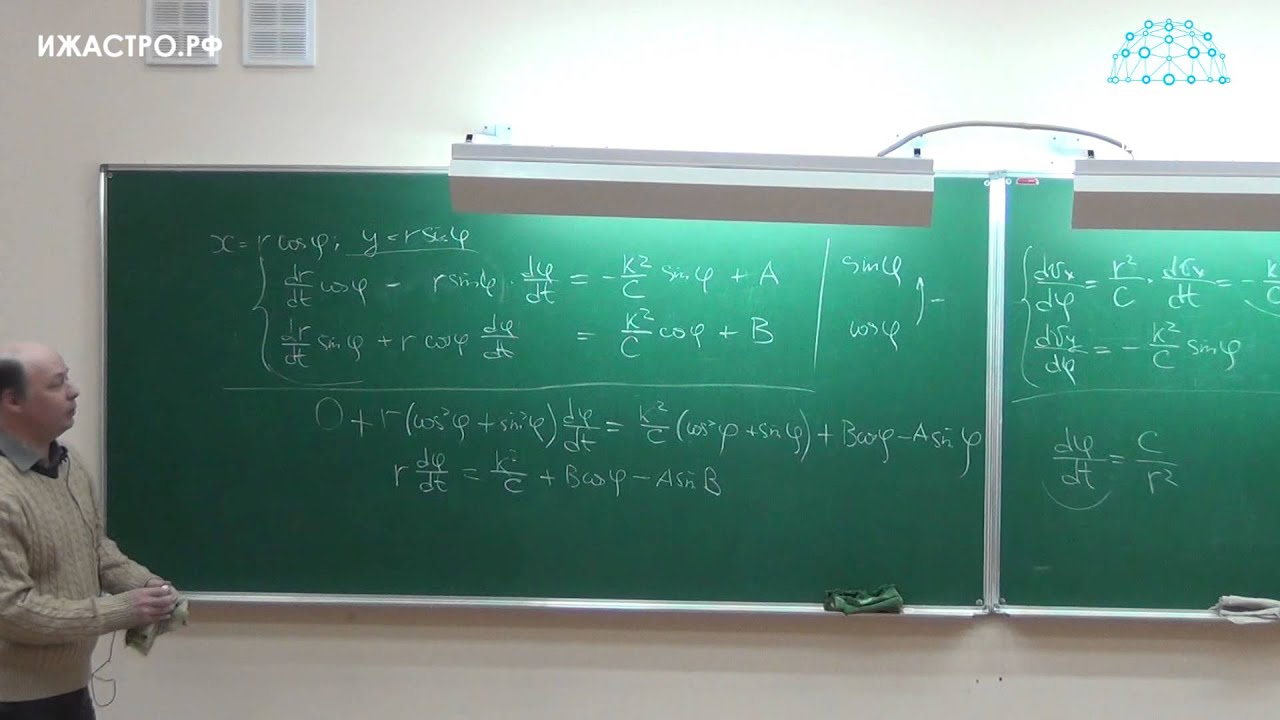 ИЖАСТРО.РФ
x = r cosφ; y = r sinφ
dr/dt cosφ - r sinφ · dφ/dt = -k²/C sinφ + A | sinφ
dr/dt sinφ + r cosφ dφ/dt = k²/C cosφ + B | cosφ ↑ -
0 + r(cos²φ + sin²φ) dφ/dt = k²/C (cos²φ + sin²φ) + B cosφ - A sinφ
r dφ/dt = k²/C + B cosφ - A sin B
dσx/dφ = r²/C · dσx/dt = - k
dσy/dφ = - k²/C sinφ
dφ/dt = C/r²